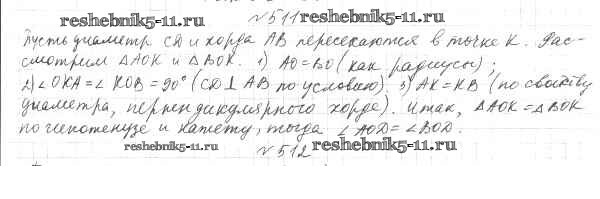 reshebnik5-11.ru №511 reshebnik5-11.ru
Пусть диаметр CD и хорда AB пересекаются в точке K. Рас-
смотрим △AOK и △BOK. 1) AO=BO (как радиусы);
2) ∠OKA=∠KOB=90° (CD⊥AB по условию). 3) AK=KB (по свойству
диаметра, перпендикулярного хорде). Итак, △AOK=△BOK
по гипотенузе и катету, тогда ∠AOD=∠BOD.
reshebnik5-11.ru №512 reshebnik5-11.ru